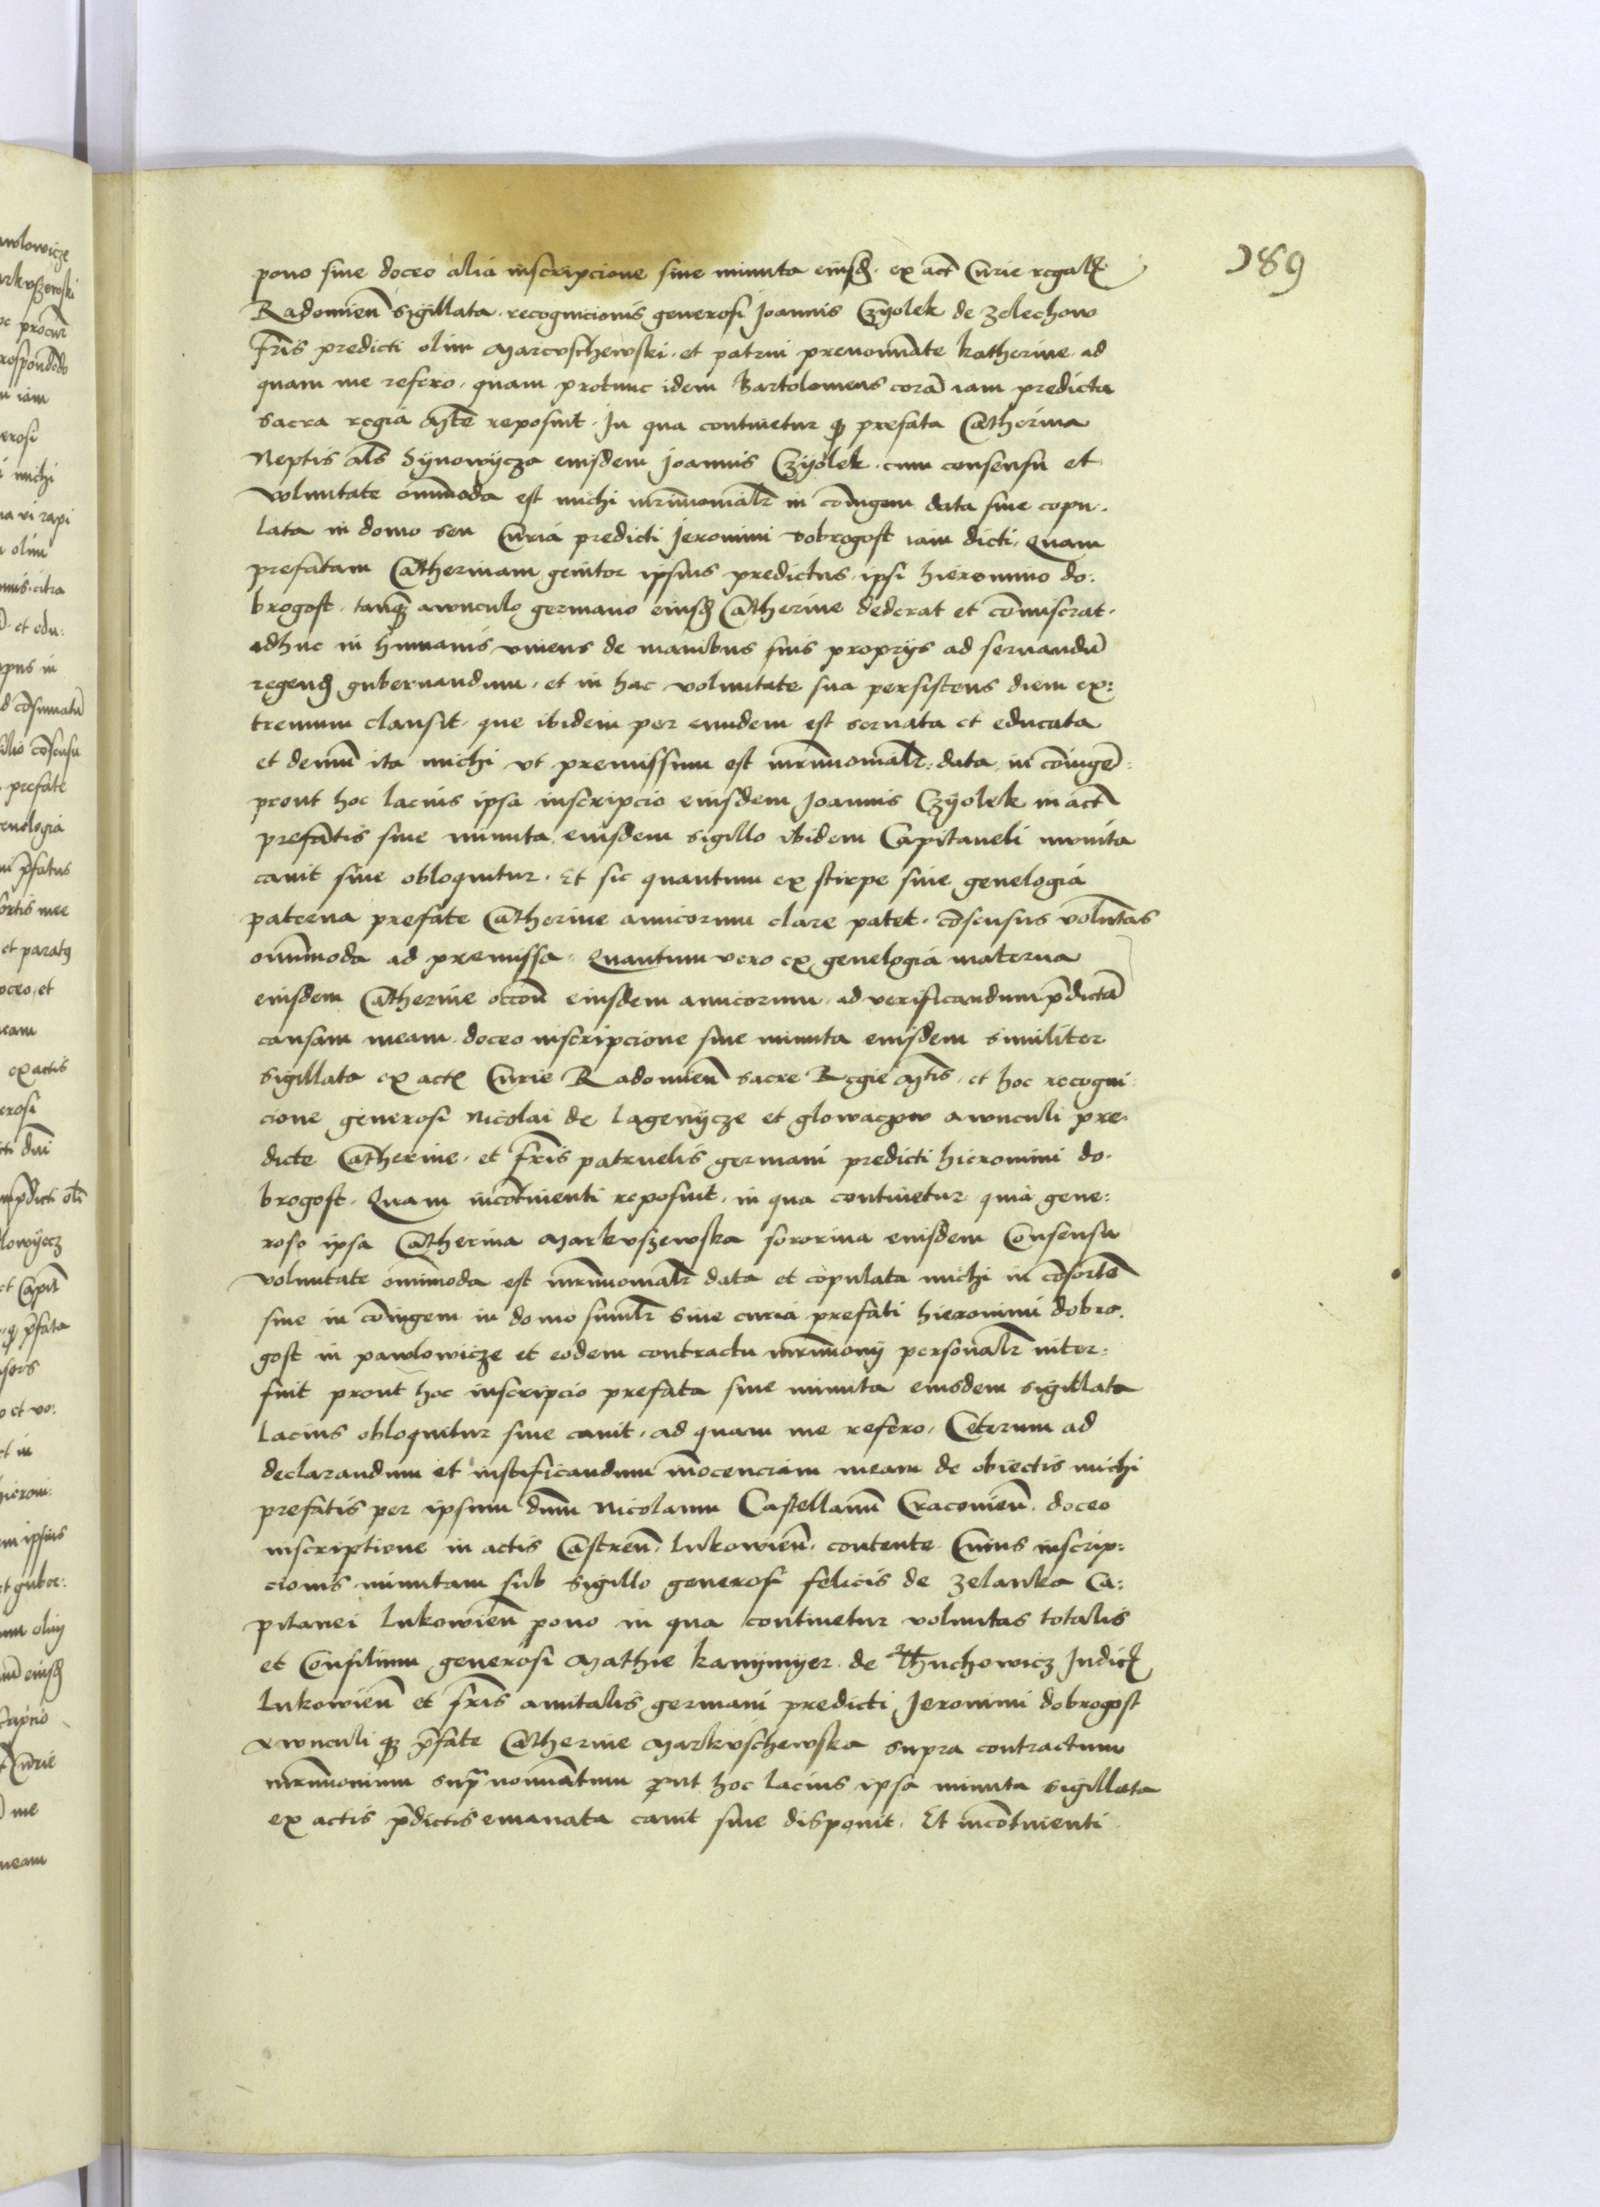 189
pono siue doceo alia inscripcione siue minuta eiusd. ex act Curie regal
Radomien̄ sigillata recognicionis generosi Joannis Czyolek de Zelechow
fr̄is predicti olim Marcuschewski et patrui prenominate Katherine ad
quam me refero. quam protunc idem Bartolomeus corā iam predicta
sacra regia M̄te reposuit. In qua continetur qz prefata Catherina
Neptis al̄s Synowycza eiusdem Joannis Czyolek. cum consensu et
voluntate omnimoda est michi mr̄imonialr̄ in coniugem data siue copu.
lata in domo seu Curia predicti Jeronimi Dobrogost iam dicti. Quam
prefatam Catherinam genitor ipsius predictus ipsi hieronimo do:
brogost. tanqz̄ awunculo germano eiusd Catherine dederat et com̄iserat.
adhuc in humanis viuens de manibus suis proprys ad seruandū
regend gubernandum. et in hac voluntate sua persistens diem ex:
tremum clausit. que ibidem per eundem est seruata et educata
et demū ita michi vt premissum est mr̄imonialr̄: data in coniugē:
prout hoc lacius ipsa inscripcio eiusdem Joannis Czyolek in act
prefatis siue minuta eiusdem sigillo ibidem Capitaneli munita
canit siue obloquitur. Et sic quantum ex stirpe siue genelogia
paterna prefate Catherine amicorum clare patet. cōsensus volūntas
omnimoda ad premissa. Quantum vero ex genelogia materna
eiusdem Catherine eiusdem amicorum. ad verificandum p̄dictā
causam meam doceo inscripcione siue minuta eiusdem similiter
sigillata ex act Curie Radomien̄ sacre Regie M̄tis. et hoc recogni
cione generosi Nicolai de Lagenycze et glowaczow awunculi pre.
dicte Catherine. et fr̄is patruelis germani predicti hieronimi do.
brogost. Quam incōtinenti reposuit. in qua continetur quia gene:
rosa ipsa Catherina Markuszewska sororina eiusdem Consensu
voluntate omnimoda est mr̄imonialr̄ data et copulata michi in cōsortē
siue in cōiugem in domo similr̄ siue curia prefati hieronimi dobro.
gost in pawlowicze et eodem contractu mr̄imony personalr̄ inter:
fuit prout hoc inscripcio prefata siue minuta eiusdem sigillata
lacius obloquitur siue canit. ad quam me refero. Ceterum ad
declarandum et iustificandum inocenciam meam de obiectis michi
prefatis per ipsum dn̄m Nicolaum Castellanū Cracouien̄. doceo
inscriptione in actis Castren̄. Lukowien̄. contente Cuius inscrip:
cionis minutam sub sigillo generosi felicis de zelanka Ca:
pitanei Lukowien̄ pono in qua continetur voluntas totalis
et Consilium generosi Mathie Kazymyer de Thuchowicz Judic
Lukowien̄ et fr̄is amitalis germani predicti Jeronimi dobrogost
awunculi qz p̄fate Catherine Markuschewska supra contractum
mr̄imonium sup̄ nomināatum prout hoc lacius ipsa minuta sigillata
ex actis p̄dictis emanata canit siue disponit. Et incōtinenti